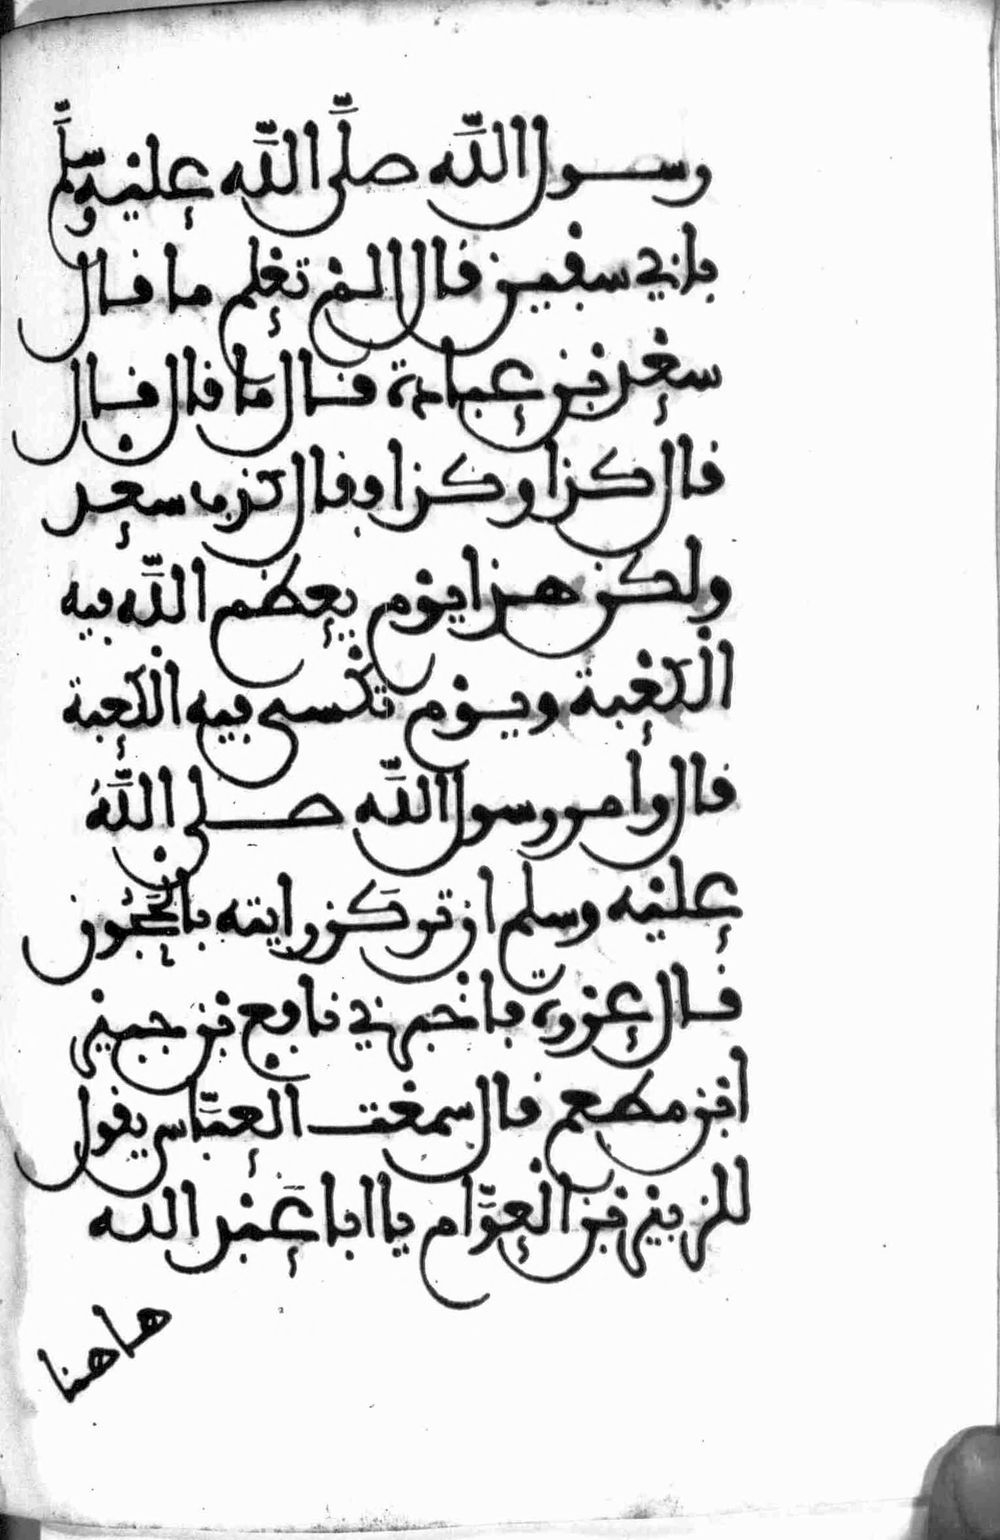 رسول الله صلى الله عليه وسلم
بابي سفين قال الم تعلم ما قال
سعد بن عبادة قال ما قال قال
قال كذا وكذا وقال كذب سعد
ولكن هذا يوم يعظم الله فيه
الكعبة ويوم تكسى فيه الكعبة
قال وامر رسول الله صلى اللهُ
عليه وسلم ان تركز رايته بالحجون
قال عروة فاخبرني نافع بن جبير
ابن مطعم قال سمعت العباس يقول
للزبير بن العوام يا ابا عبد الله
هاهنا